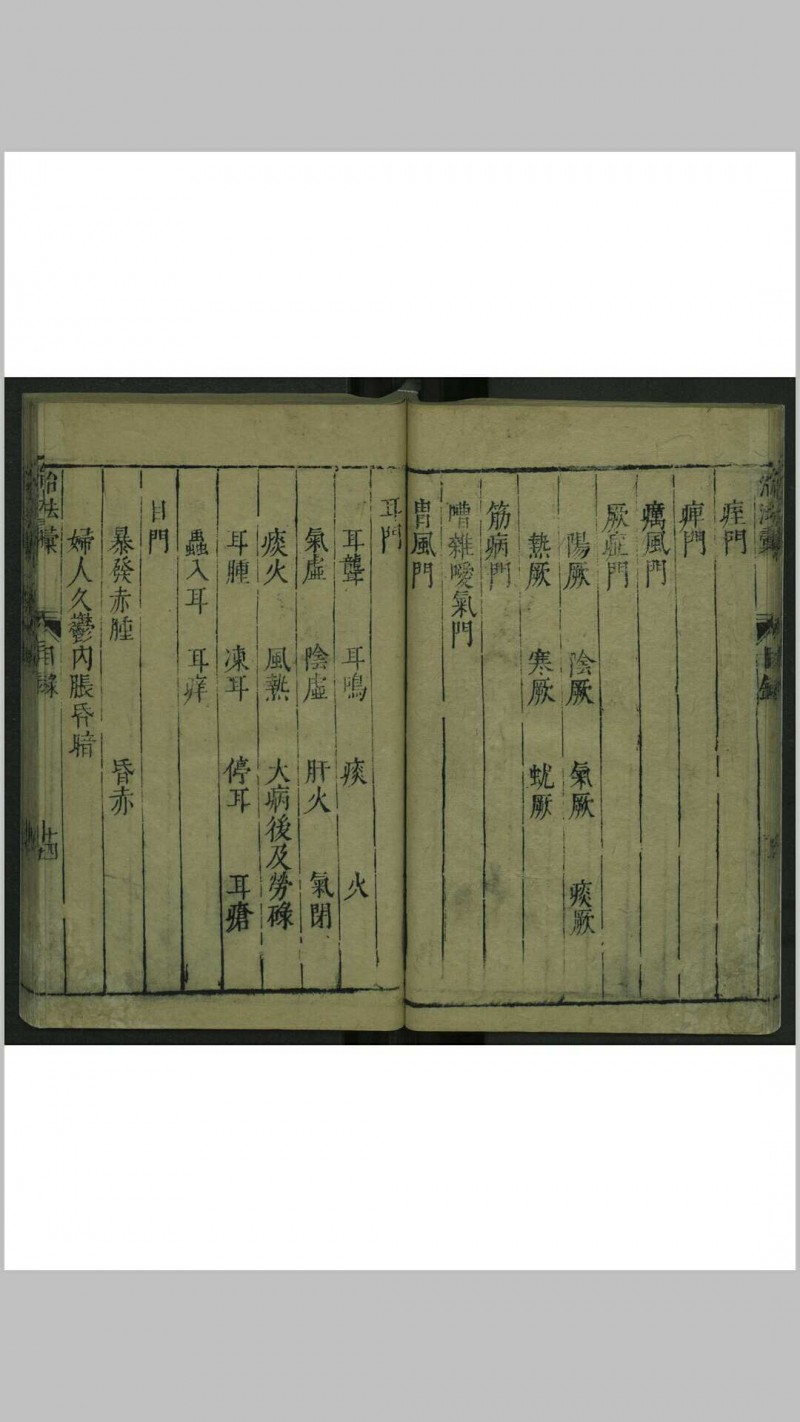 痓門
痺門
癘風門
厥症門
陽厥 陰厥 氣厥 痰厥
熱厥 寒厥 蚘厥
筋病門
嘈雜噯氣門
胃風門
耳門
耳聾 耳鳴 痰 火
氣虛 陰虛 肝火 氣閉
痰火 風熱 大病後及勞碌
耳腫 凍耳 停耳 耳瘡
蟲入耳 耳痒
目門
暴發赤腫 昏赤
婦人久鬱內脹昏暗
治法彙 目錄 十四